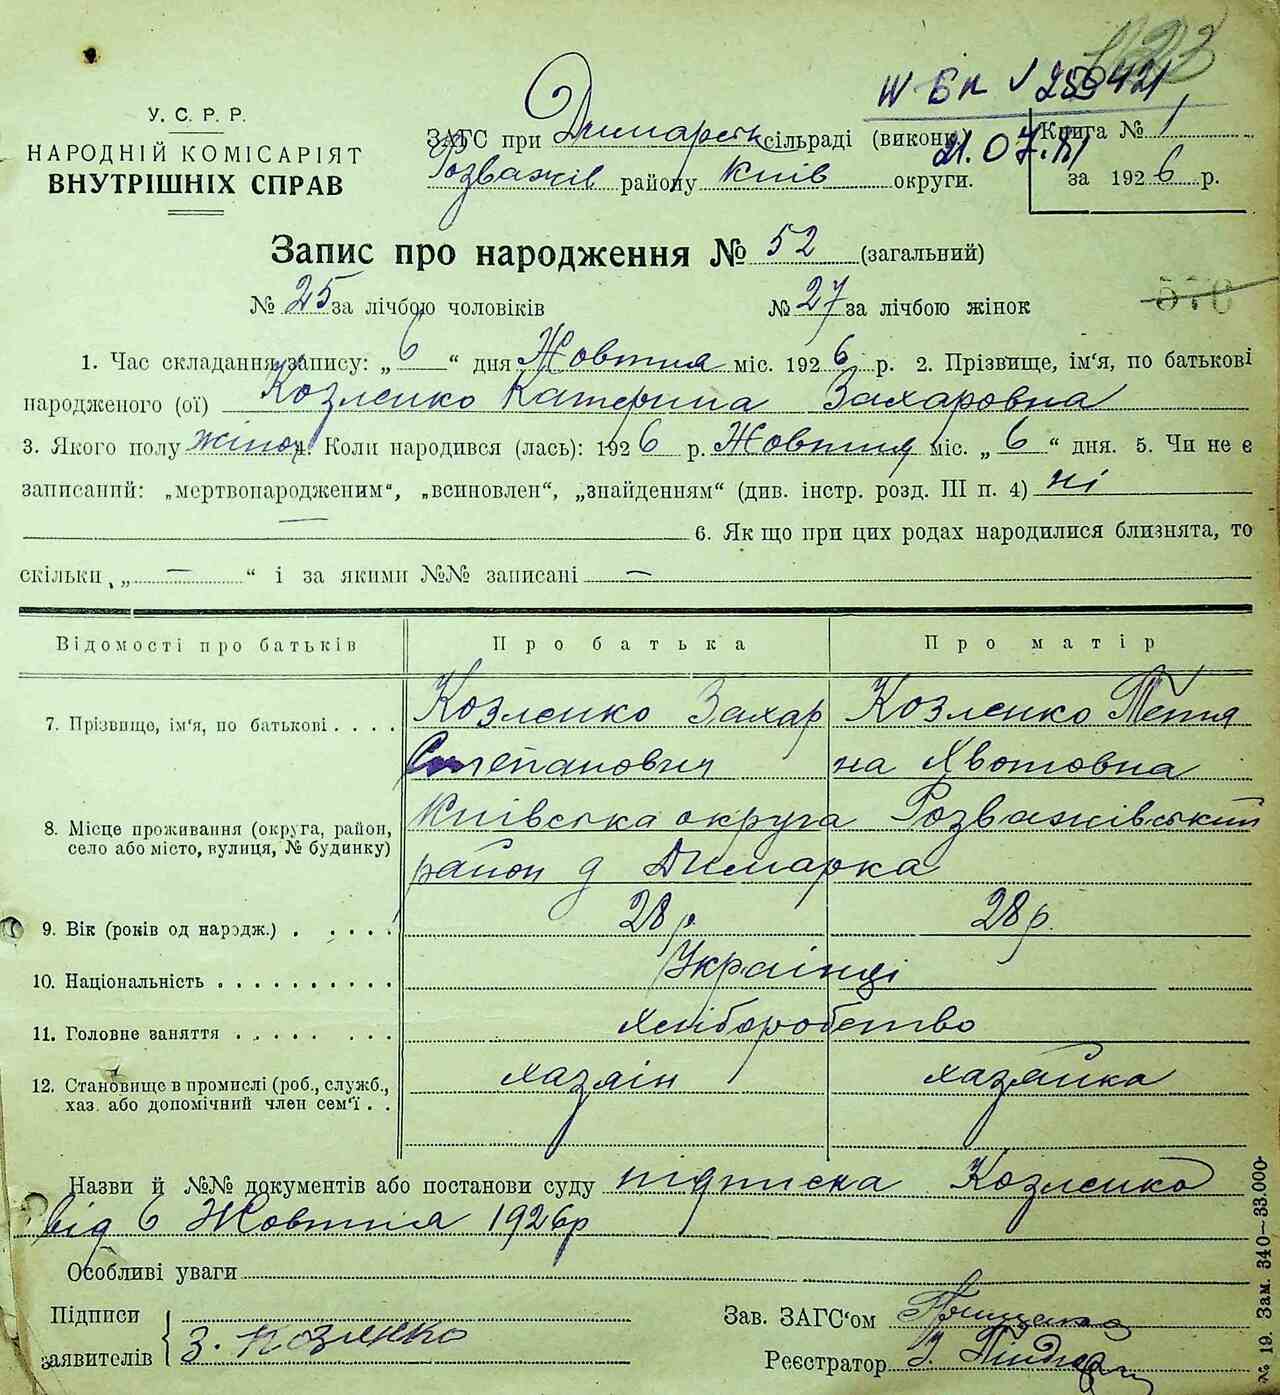 У. С. Р. Р.
НАРОДНІЙ КОМІСАРІЯТ
ВНУТРІШНІХ СПРАВ
1 Бк № 259421
21.07.81
ЗАГС при Димарськ сільраді (викони.)
Розважів району Київ округи.
Книга № 1
за 1926 р.
Запис про народження № 52 (загальний)
№ 25 за лічбою чоловіків № 27 за лічбою жінок
570
1. Час складання запису: „6“ дня Жовтня міс. 1926 р. 2. Прізвище, ім'я, по батькові
народженого (ої) Козленко Катерина Захаровна
3. Якого полу жіноч 4. Коли народився (лась): 1926 р. Жовтня міс. „6“ дня. 5. Чи не є
записаний: „мертвонародженим“, „всиновлен“, „знайденням“ (див. інстр. розд. III п. 4) ні
— 6. Як що при цих родах народилися близнята, то
скільки „ — “ і за якими №№ записані —
Відомості про батьків Про батька Про матір
7. Прізвище, ім'я, по батькові Козленко Захар Козленко Тетя
Степанович на Хвотовна
8. Місце проживання (округа, район, Київська округа Розважівський
село або місто, вулиця, № будинку) район д Димарка
9. Вік (років од народж.) 28 р 28 р.
10. Національність Українці
11. Головне заняття хліборобство
12. Становище в промислі (роб., служб., хазяін хазяйка
хаз. або допомічний член сем'ї
Назви й №№ документів або постанови суду підписка Козленко
від 6 Жовтня 1926р
Особливі уваги
Підписи
заявителів З. Козленко
Зав. ЗАГС'ом
Реєстратор
№ 19. Зам. 340—33.000